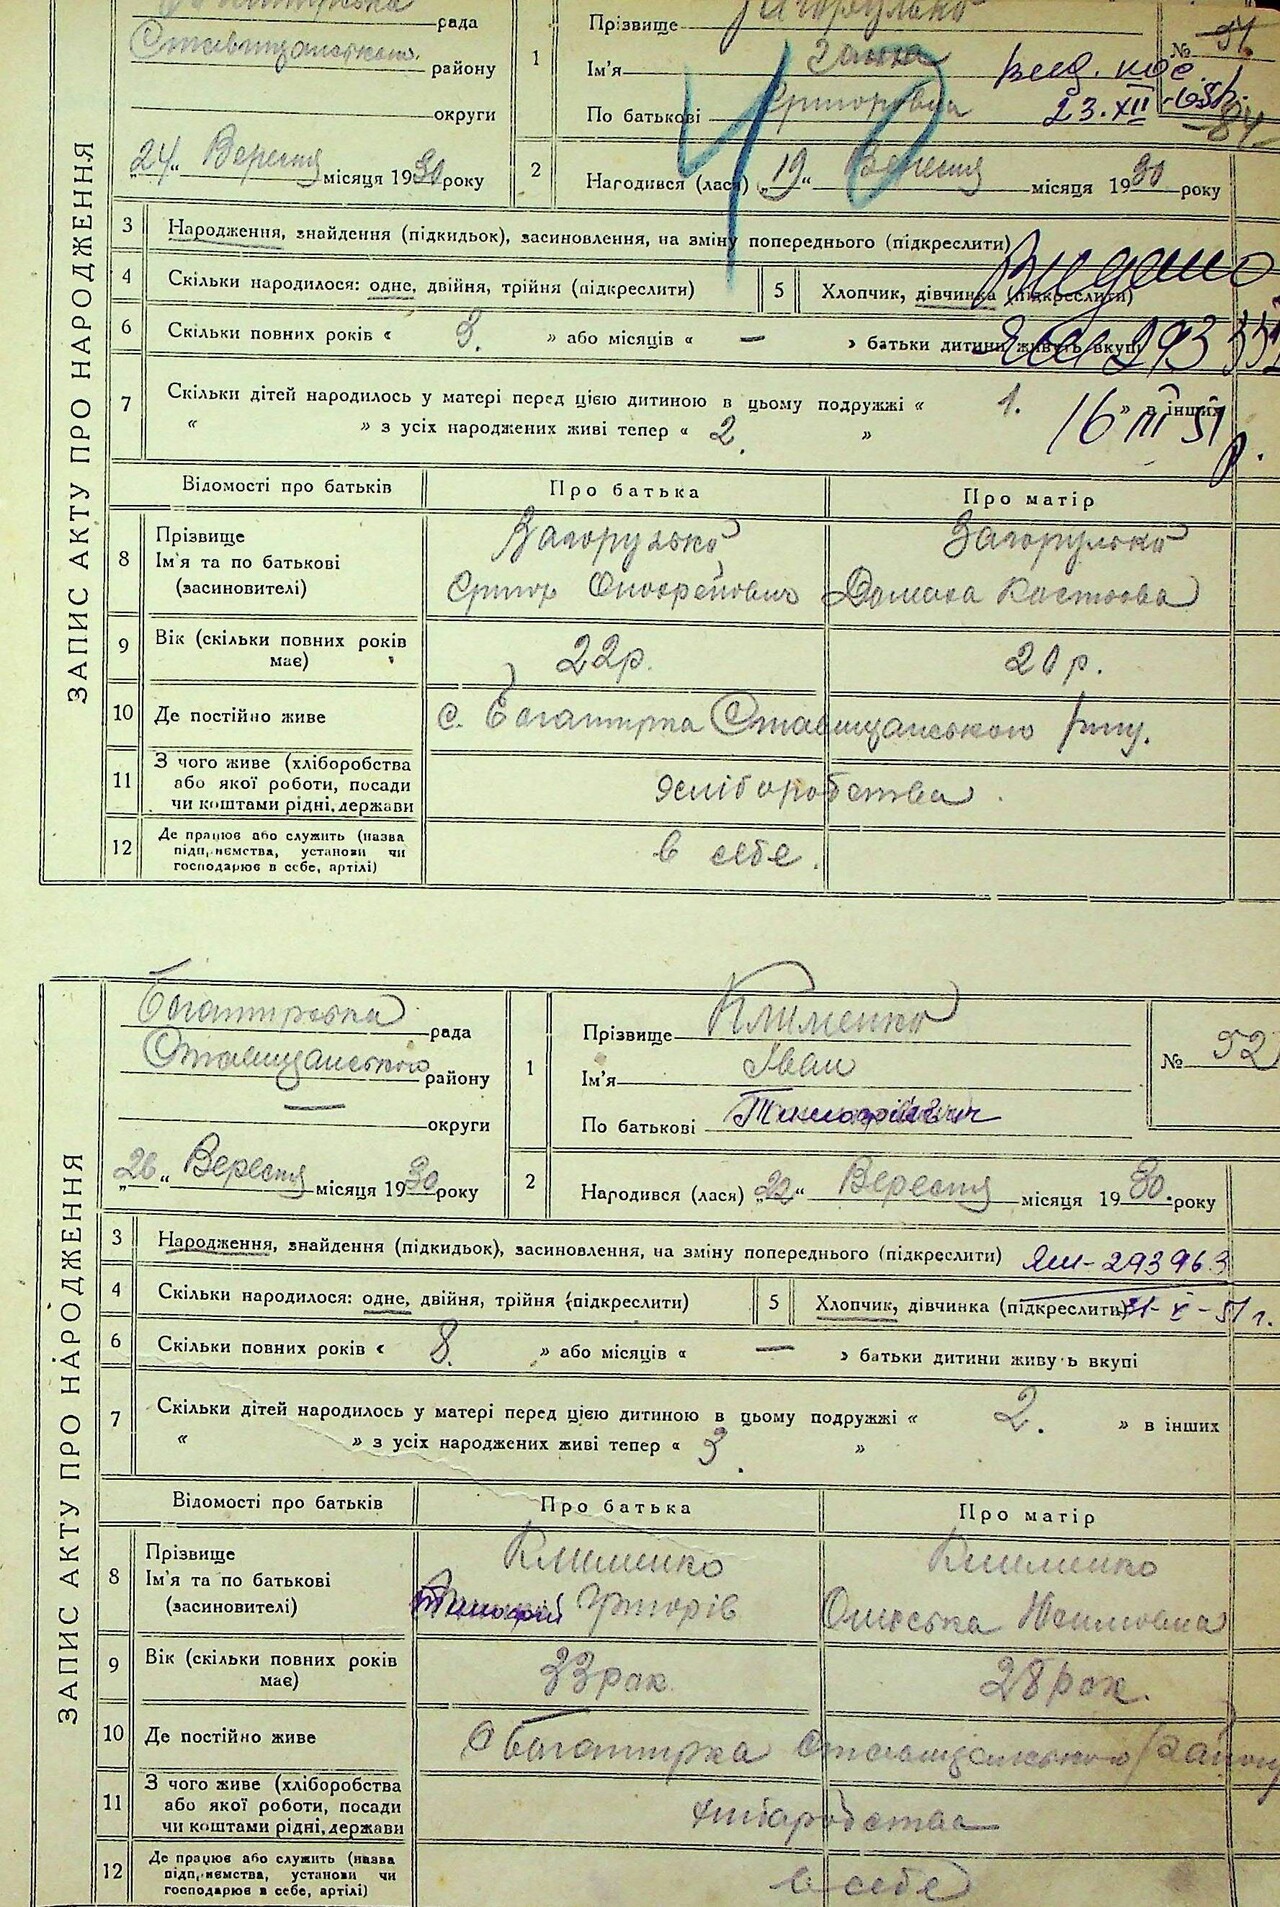 рада
Ставищанського району
округи
„24" Вересня місяця 1930 року
1 Прізвище Загорулько
Ім'я
По батькові
№ 51.
вид. пос.
23.XII
84
2 Народився (лася) „19" Вересня місяця 1930 року
40
ЗАПИС АКТУ ПРО НАРОДЖЕННЯ
3 Народження, знайдення (підкидьок), засиновлення, на зміну попереднього (підкреслити)
Видано
4 Скільки народилося: одне, двійня, трійня (підкреслити)
5 Хлопчик, дівчинка (підкреслити)
6 Скільки повних років « 3. » або місяців « — » батьки дитини живуть вкупі
293
7 Скільки дітей народилось у матері перед цією дитиною в цьому подружжі « 1. » в інших
« » з усіх народжених живі тепер « 2. »
16 III 51 р.
Відомості про батьків Про батька Про матір
8 Прізвище Загорулько Загорулько
Ім'я та по батькові
(засновителі)
9 Вік (скільки повних років має) 22р. 20 р.
10 Де постійно живе с. Богатирка Ставищанського р-ну.
11 З чого живе (хліборобства або якої роботи, посади чи коштами рідні, держави хліборобства
12 Де працює або служить (назва підприємства, установи чи господарює в себе, артілі) в себе.
Богатирська рада
Ставищанського району
— округи
„26" Вересня місяця 1930 року
1 Прізвище Клименко
Ім'я Іван
По батькові Тимофійович
№ 52
2 Народився (лася) „22" Вересня місяця 1930. року
ЗАПИС АКТУ ПРО НАРОДЖЕННЯ
3 Народження, знайдення (підкидьок), засиновлення, на зміну попереднього (підкреслити) ЯШ-293963
4 Скільки народилося: одне, двійня, трійня (підкреслити)
5 Хлопчик, дівчинка (підкреслити) 31-X-51 г.
6 Скільки повних років « 8. » або місяців « — » батьки дитини живу ь вкупі
7 Скільки дітей народилось у матері перед цією дитиною в цьому подружжі « 2. » в інших
« » з усіх народжених живі тепер « 3. »
Відомості про батьків Про батька Про матір
8 Прізвище Клименко Клименко
Ім'я та по батькові Тимофій Григорів
(засиновителі)
9 Вік (скільки повних років має) 33 рок. 28 рок.
10 Де постійно живе с Богатирка Ставищанського району
11 З чого живе (хліборобства або якої роботи, посади чи коштами рідні, держави хліборобства
12 Де працює або служить (назва підприємства, установи чи господарює в себе, артілі) в себе